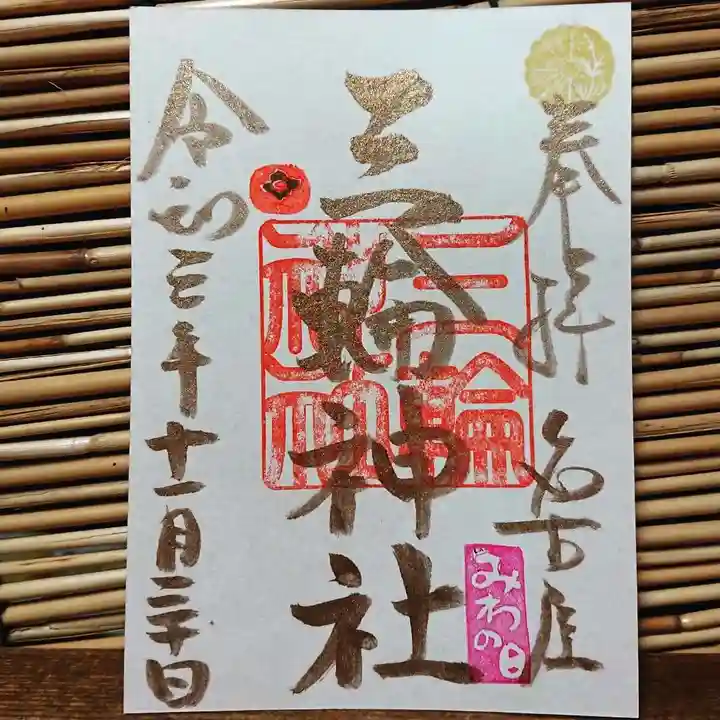 奉拝 名古屋
みわの日
三輪神社
三輪神社
令和三年十一月三十日